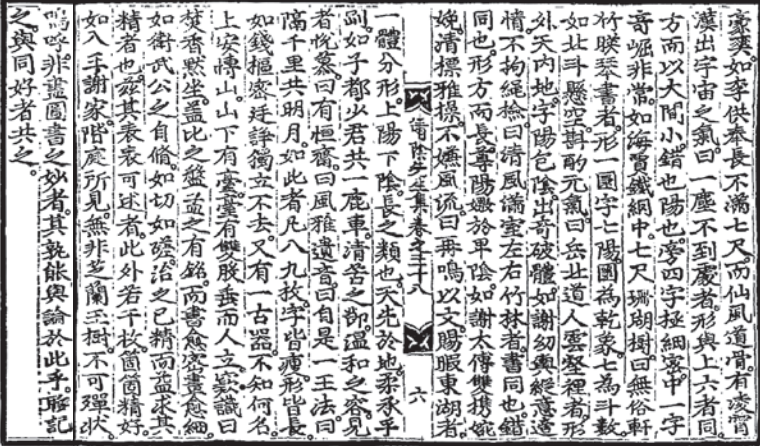 豪爽。如李供奉長不滿七尺。而仙風道骨。有凌霄
漢出宇宙之氣。曰一塵不到處者。形與上六者同。
方而以大間小錯也。陽也。旁四字極細密。中一字
奇崛非常。如海賈鐵網中。七尺珊瑚樹。曰無俗軒
竹暎琴書者。形一圓字七。陽。圓爲乾象。七爲斗數。
如北斗懸空。斟酌元氣。曰岳北道人雲壑裡者。形
外天內地。字陽包陰。出奇破體。如謝幼輿縱意適
情。不拘繩檢。曰淸風滿室左右竹林者。書同也。錯
同也。形方而長。尊陽嫩於卑陰。如謝太傅雙携婉
娩。淸標雅操。不嫌風流。曰再鳴以文賜暇東湖者。
淸陰先生集卷之三十八
六
一體分形。上陽下陰。長之類也。天先於地。柔承乎
剛。如子都少君共一鹿車。淸苦之節。溫和之容。見
者悅慕。曰有恒齋。曰風雅遺音。曰自是一王法。曰
隔千里共明月。如此者凡八九枚。字皆瘦。形皆長。
如錢樞密廷諍獨立不去。又有一古器。不知何名。
上安慱山。山下有臺。臺有雙股。垂而人立。款識曰
焚香默坐。盖比之盤盂之有銘。而書愈密畫愈細。
如衛武公之自脩。如切如磋。治之已精而益求其
精者也。玆其表表可述者。此外若千枚。箇箇精好。
如入手謝家。階庭所見。無非芝蘭玉樹。不可殫狀。
嗚呼。非畫圖書之妙者。其孰能與論於此乎。聊記
之。與同好者共之。